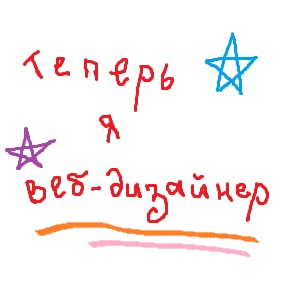 теперь
я
веб-дизайнер